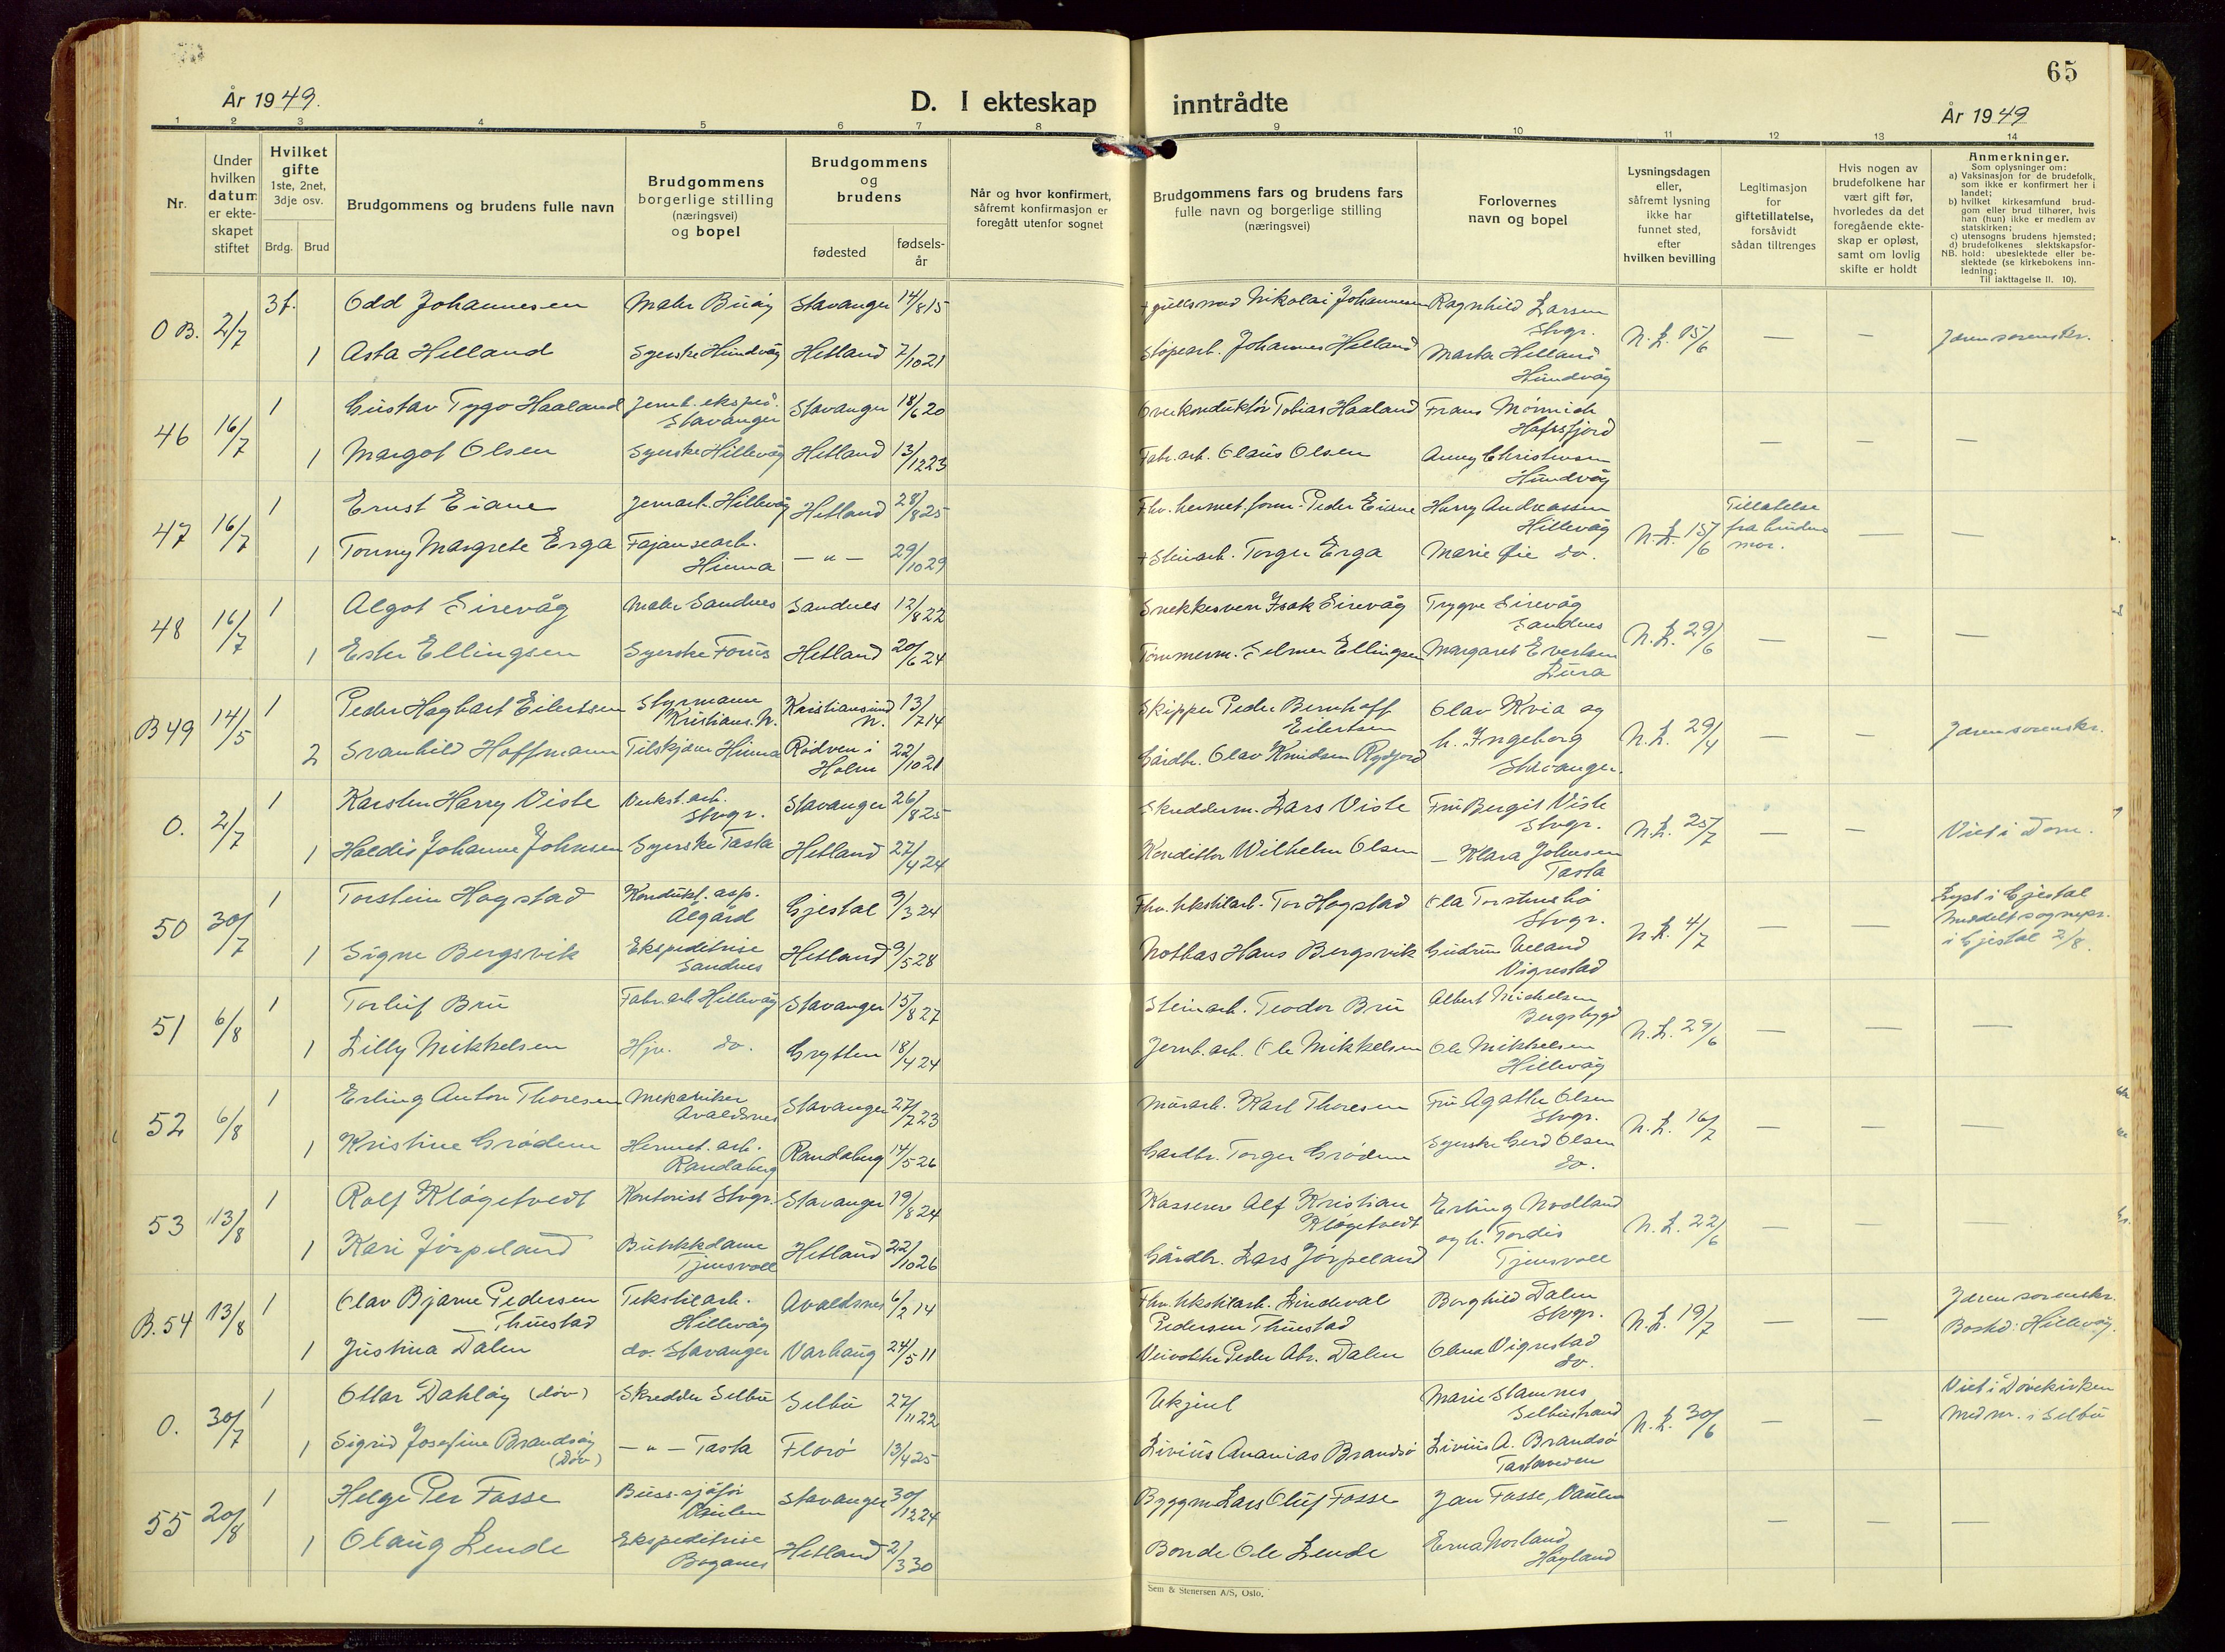 65
År 1949.
D. I ekteskap inntrådte
År 1949
1 2 3 4 5 6 7 8 9 10 11 12 13 14
Nr.
Under
hvilken
datum
er ekte-
skapet
stiftet
Hvilket
gifte
1ste, 2net,
3dje osv.
Brdg. Brud
Brudgommens og brudens fulle navn
Brudgommens
borgerlige stilling
(næringsvei)
og bopel
Brudgommens
og
brudens
fødested
fødsels-
år
Når og hvor konfirmert,
såfremt konfirmasjon er
foregått utenfor sognet
Brudgommens fars og brudens fars
fulle navn og borgerlige stilling
(næringsvei)
Forlovernes
navn og bopel
Lysningsdagen
eller,
såfremt lysning
ikke har
funnet sted,
efter
hvilken bevilling
Legitimasjon
for
giftetillatelse,
forsåvidt
sådan tiltrenges
Hvis nogen av
brudefolkene har
vært gift før,
hvorledes da det
foregående ekte-
skap er opløst,
samt om lovlig
skifte er holdt
Anmerkninger.
Som oplysninger om:
a) Vaksinasjon for de brudefolk,
som ikke er konfirmert her i
landet;
b) hvilket kirkesamfund brud-
gom eller brud tilhører, hvis
han (hun) ikke er medlem av
statskirken;
c) utensogns brudens hjemsted;
d) brudefolkenes slektskapsfor-
NB. hold: ubeslektede eller be-
slektede (se kirkebokens inn-
ledning;
Til iakttagelse II. 10).
O B. 2/7 3f. Odd Johannesen Maler Buøy Stavanger 14/8 15 + gullsmed Nikolai Johannesen Ragnhild Larsen
Stvgr. N.L. 15/6 — — Jæren sorenskr.
1 Asta Helland Syerske Hundvåg Hetland 7/10 21 Støpearb. Johannes Helland Marta Helland
Hundvåg
46 16/7 1 Gustav Tygo Haaland Jernb. eksped.
Stavanger Stavanger 18/6 20 Overkonduktør Tobias Haaland Frans Mønnich
Hafrsfjord — — —
1 Margot Olsen Syerske Hillevåg Hetland 13/12 23 Fabr. arb. Olaus Olsen Anny Christensen
Hundvåg
47 16/7 1 Ernst Eiane Jernarb. Hillevåg Hetland 28/8 25 Fhv. hermet. form. Peder Eiane Harry Andreassen
Hillevåg N.L. 15/6 Tillatelse
fra brudens
mor. — —
1 Tonny Margrete Erga Fajansearb.
Hinna — " — 29/10 29 + Steinarb. Torger Erga Marie Øie do.
48 16/7 1 Algot Eirevåg Maler Sandnes Sandnes 12/8 22 Snekkersven Isak Eirevåg Trygve Eirevåg
Sandnes N.L. 29/6 — — —
1 Ester Ellingsen Syerske Forus Hetland 20/6 24 Tømmerm. Selmer Ellingsen Margaret Evertsen
Lura
B 49 14/5 1 Peder Hagbart Eilertsen Styrmann
Kristians. N. Kristiansund
N. 13/7 14 Skipper Peder Bernhoff
Eilertsen Olav Kvia og
h. Ingeborg
Stavanger. N.L. 29/4 — — Jæren sorenskr.
2 Svanhild Hoffmann Tilskjærer Hinna Rødven i
Holm 22/10 21 Gårdbr. Olav Knudsen Rydjord
O. 2/7 1 Karsten Harry Viste Verkst. arb.
Stvgr. Stavanger 26/8 25 Skredderm. Lars Viste Fru Bergit Viste
Stvgr. N.L. 25/7 — — Viet i Dom.
1 Haldis Johanne Johnsen Syerske Tasta Hetland 27/4 24 Konditor Wilhelm Olsen — Klara Johnsen
Tasta
50 30/7 1 Torstein Hagstad Kondukt. asp.
Ålgård Gjestal 9/3 24 Fhv. tekstilarb. Tor Hagstad Ola Torstensbø
Stvgr. N.L. 4/7 — — Lyst i Gjestal
Meddelt sognepr.
i Gjestal 2/8.
1 Signe Bergsvik Ekspeditrise
Sandnes Hetland 9/5 28 Notbas Hans Bergsvik Gudrun Ueland
Vigrestad
51 6/8 1 Torleif Bru Fabr. arb. Hillevåg Stavanger 15/8 27 Steinarb. Teodor Bru Albert Mickelsen
Bergsbygd N.L. 29/6 — — —
1 Lilly Mikkelsen Hjv. do. Grytten 18/4 24 Jernb. arb. Ole Mikkelsen Ole Mikkelsen
Hillevåg
52 6/8 1 Erling Anton Thoresen Mekaniker
Avaldsnes Stavanger 27/7 23 Murarb. Karl Thoresen Fru Agathe Olsen
Stvgr. N.L. 16/7 — — —
1 Kristine Grødem Hermet. arb.
Randaberg Randaberg 14/5 26 Gardbr. Torger Grødem Syerske Gerd Olsen
do.
53 13/8 1 Rolf Kløgetvedt Kontorist Stvgr. Stavanger 19/8 24 Kasserer Alf Kristian
Kløgetvedt Erling Nodland
og h. Tordis
Tjensvoll N.L. 22/6 — — —
1 Kari Jørpeland Butikkdame
Tjensvoll Hetland 22/10 26 Gårdbr. Lars Jørpeland
B. 54 13/8 1 Olav Bjarne Pedersen
Thuestad Tekstilarb.
Hillevåg Avaldsnes 6/2 14 Fhv. tekstilarb. Lindeval
Pedersen Thuestad Borghild Dalen
Stvgr. N.L. 19/7 — — Jæren sorenskr.
Bosted: Hillevåg.
1 Justina Dalen do. Stavanger Varhaug 24/5 11 Veivokter Peder Abr. Dalen Olena Vigrestad
do.
O. 30/7 1 Ottar Dahløy (døv) Skredder Selbu Selbu 27/11 22 Ukjent Marie Stamnes
Selbustrand N.L. 30/6 — — Viet i Døvekirken
Med m. i Selbu
1 Sigrid Josefine Brandsøy
(Døv) — " — Tasta Florø 13/4 25 Livius Ananias Brandsø Livius A. Brandsø
Tastaveden
55 20/8 1 Helge Per Fosse Buss-sjåfør
Vaulen Stavanger 30/12 24 Byggm. Lars Oluf Fosse Jan Fosse, Vaulen — — —
1 Olaug Lende Ekspeditrise
Boganes Hetland 2/3 30 Bonde Ole Lende Erna Norland
Høyland
Sem & Stenersen A/S, Oslo.